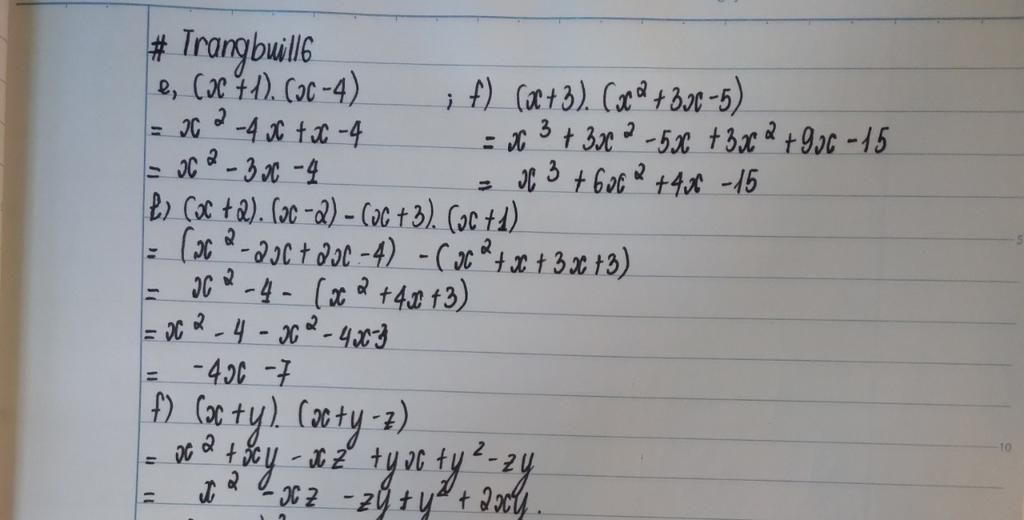 # Trangbuill6
e, (x+1).(x-4) ; f) (x+3).(x²+3x-5)
= x² -4x+x-4 = x³ + 3x² -5x +3x² +9x -15
= x² -3x -4 = x³ +6x² +4x -15
e) (x+2).(x-2)-(x+3).(x+1)
= (x²-2x+2x-4) -(x²+x+3x+3)
= x² -4 - (x² +4x+3)
= x² -4 -x² -4x-3
= -4x -7
f) (x+y).(x+y-z)
= x² +xy -xz +yx +y² -zy
= x² -xz -zy+y² + 2xy.